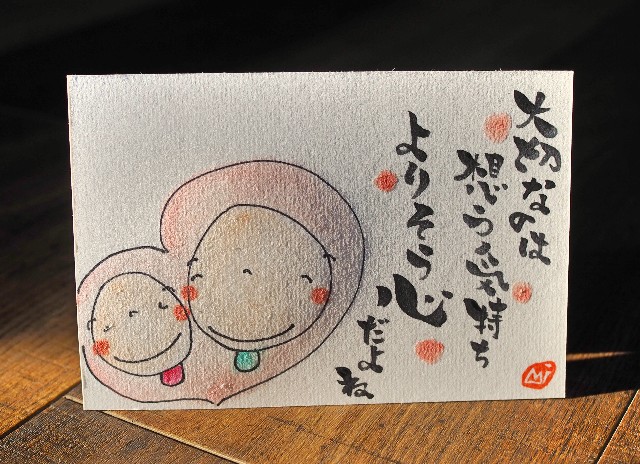 大切なのは
想う気持ち
よりそう心
だよね